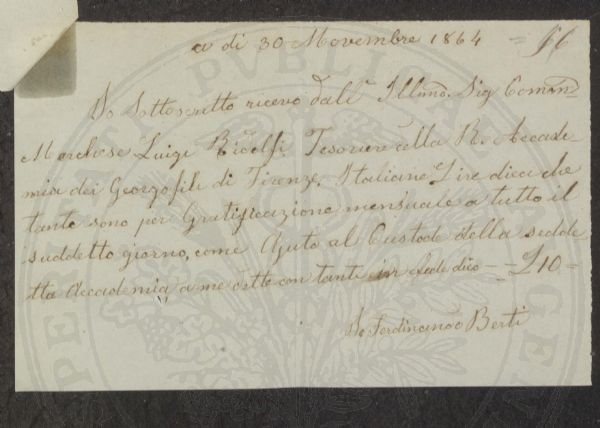 a di 30 Novembre 1864
Io Sottoscritto ricevo dall' Illmo. Sig. Comm.
Marchese Luigi Ridolfi Tesoriere della R. Accade-
mia dei Georgofili di Firenze, Italiane Lire dieci che
tante sono per Gratificazione mensuale a tutto il
suddetto giorno, come Ajuto al Custode della sudde-
tta Accademia, a me dette contanti in fede dico = £10 =
Io Ferdinando Berti